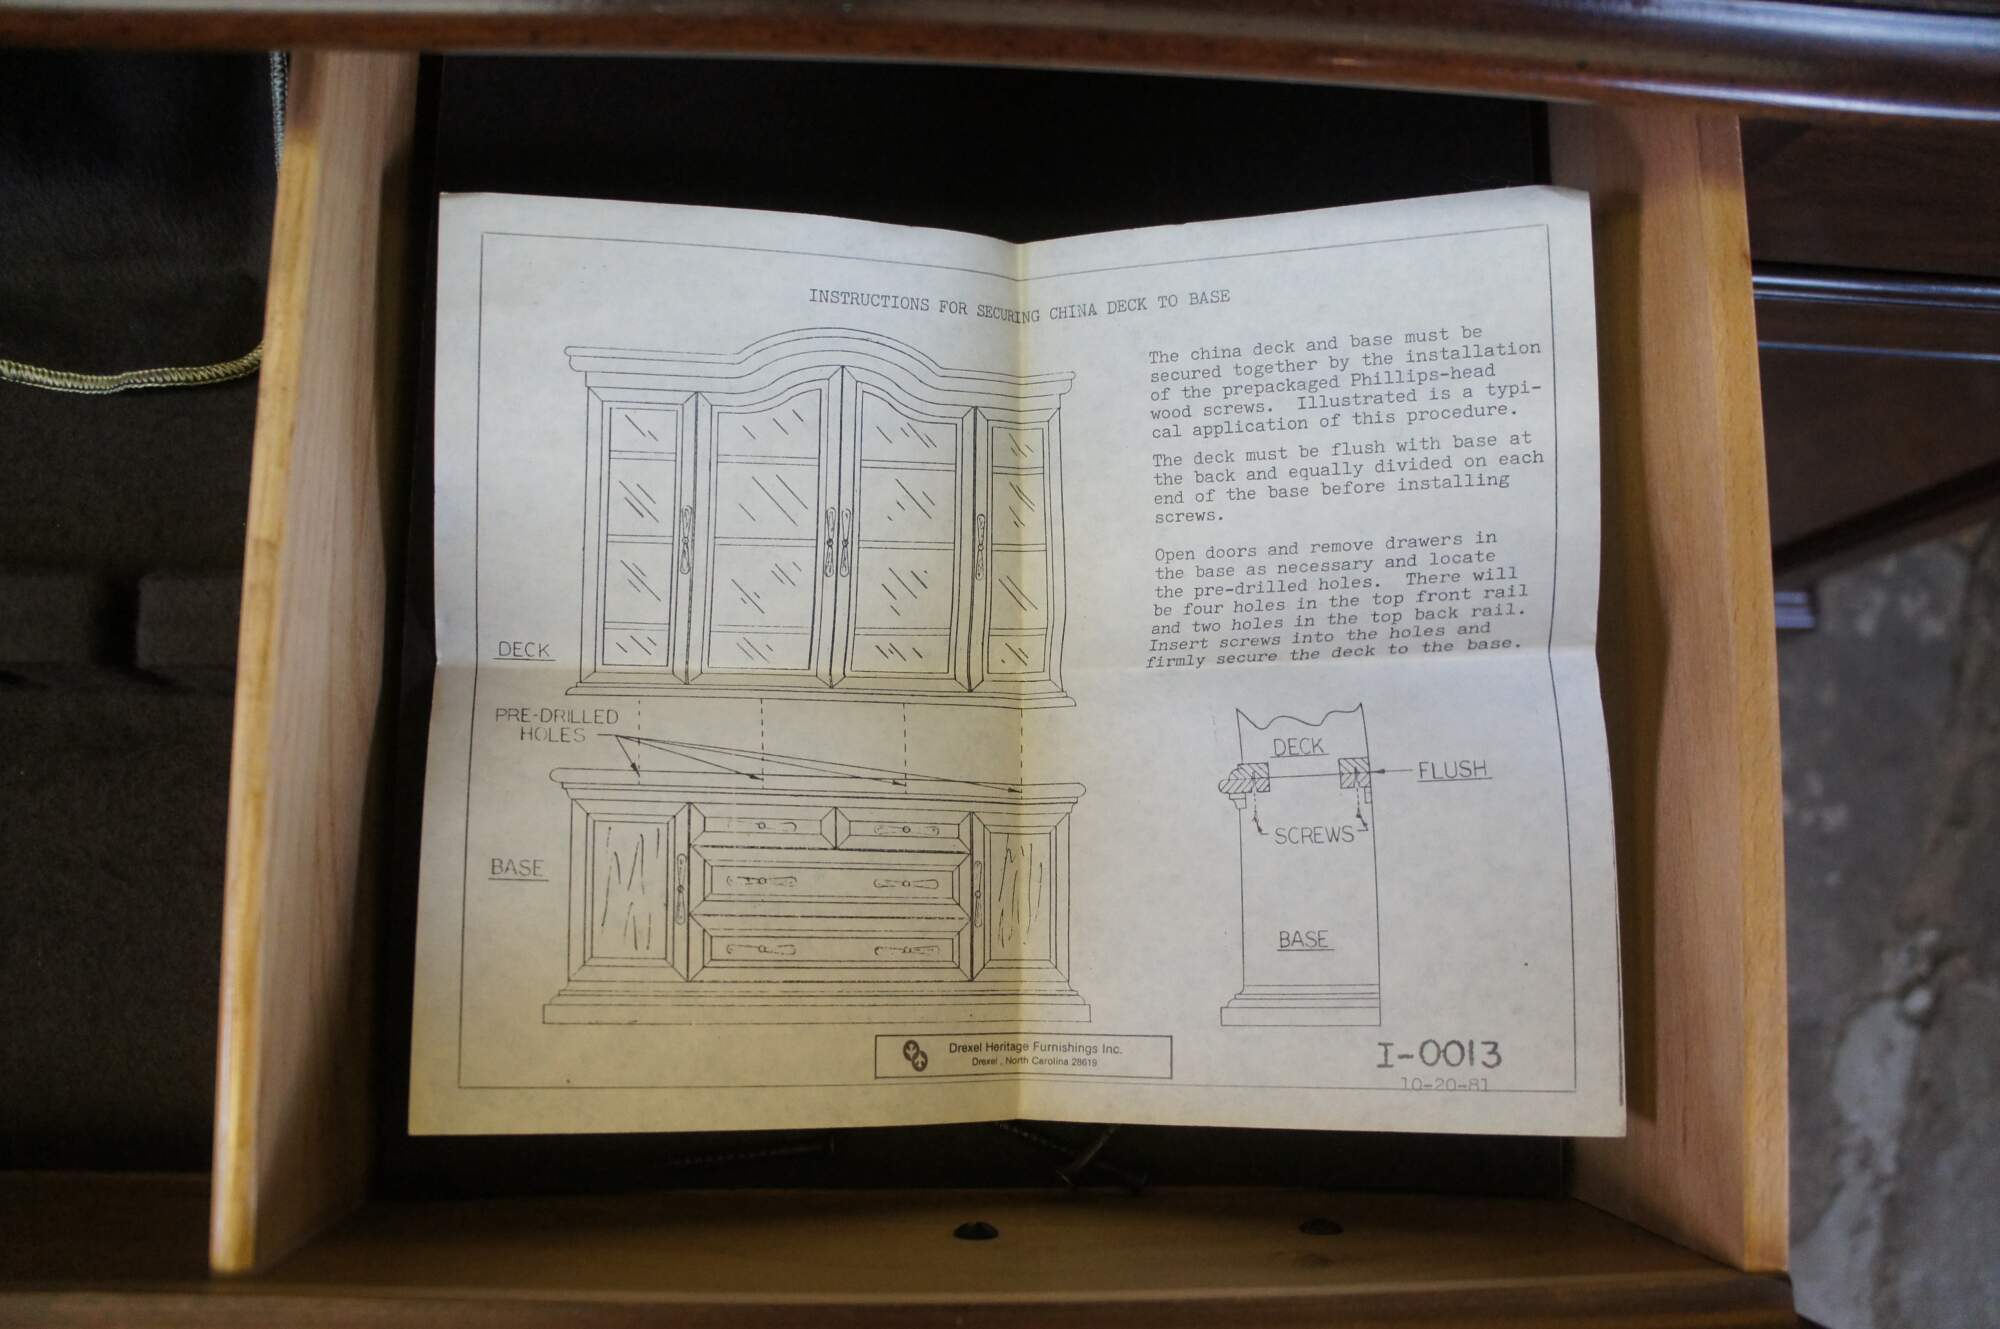 INSTRUCTIONS FOR SECURING CHINA DECK TO BASE
The china deck and base must be
secured together by the installation
of the prepackaged Phillips-head
wood screws. Illustrated is a typi-
cal application of this procedure.
The deck must be flush with base at
the back and equally divided on each
end of the base before installing
screws.
Open doors and remove drawers in
the base as necessary and locate
the pre-drilled holes. There will
be four holes in the top front rail
and two holes in the top back rail.
Insert screws into the holes and
firmly secure the deck to the base.
DECK
PRE-DRILLED
HOLES
BASE
DECK
FLUSH
SCREWS
BASE
Drexel Heritage Furnishings Inc.
Drexel, North Carolina 28619
I-0013
10-20-81